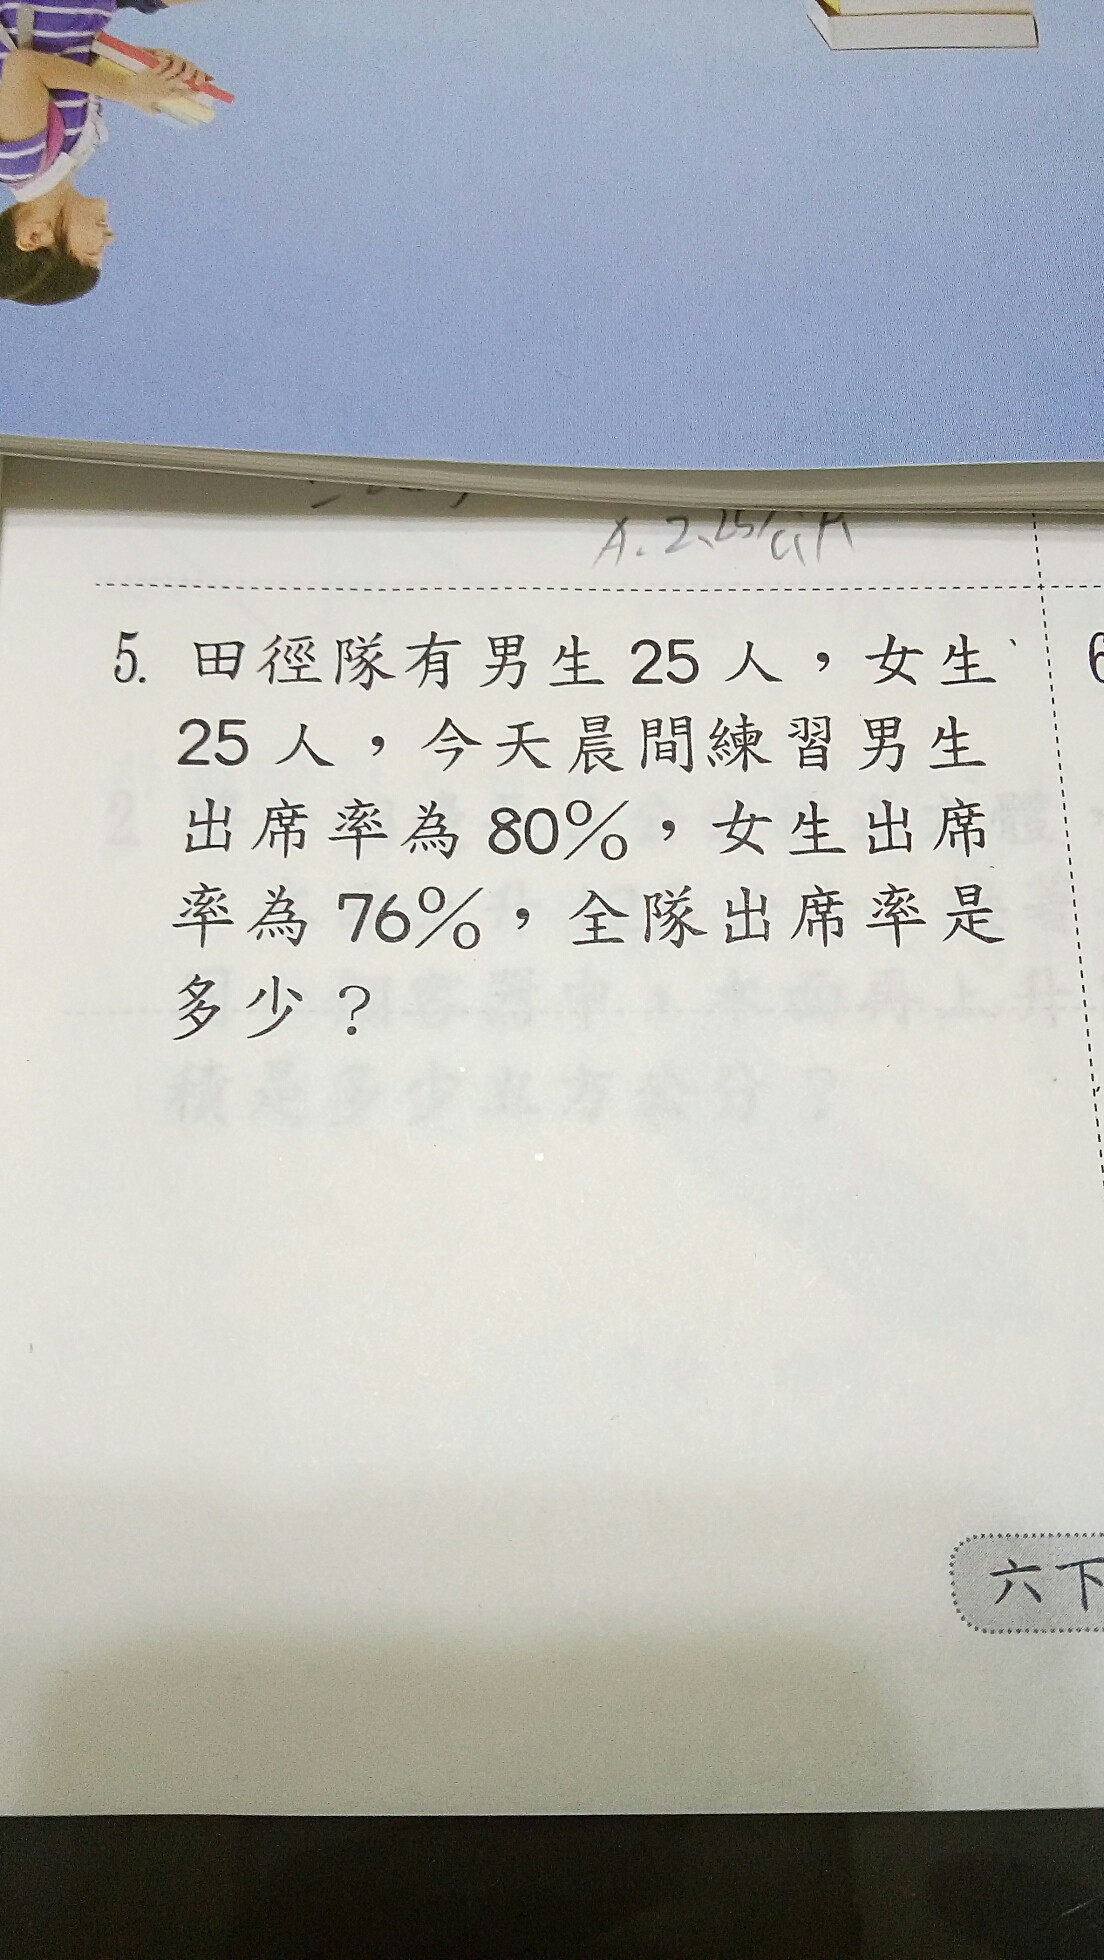 A. 2.25
5. 田徑隊有男生25人，女生
25人，今天晨間練習男生
出席率為80%，女生出席
率為76%，全隊出席率是
多少？
積是多少立方公分？
六下